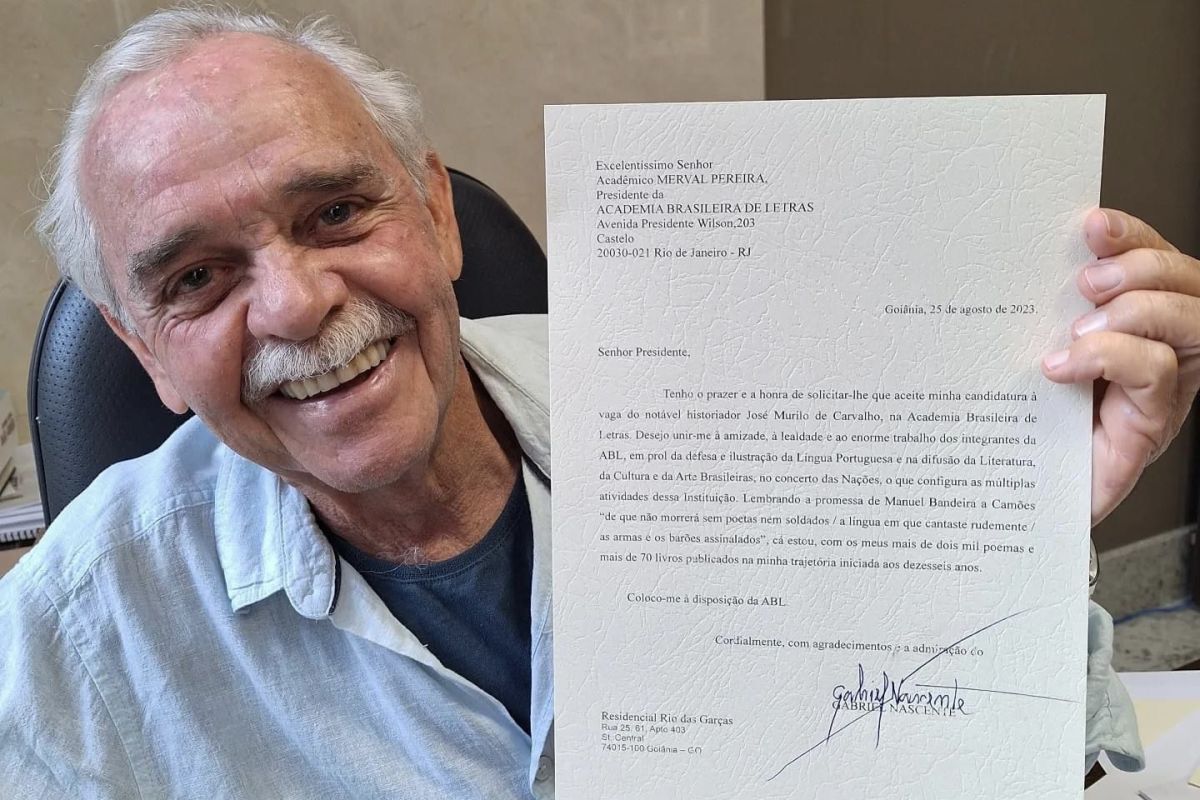 Excelentíssimo Senhor
Acadêmico MERVAL PEREIRA,
Presidente da
ACADEMIA BRASILEIRA DE LETRAS
Avenida Presidente Wilson,203
Castelo
20030-021 Rio de Janeiro - RJ
Goiânia, 25 de agosto de 2023.
Senhor Presidente,
Tenho o prazer e a honra de solicitar-lhe que aceite minha candidatura à
vaga do notável historiador José Murilo de Carvalho, na Academia Brasileira de
Letras. Desejo unir-me à amizade, à lealdade e ao enorme trabalho dos integrantes da
ABL, em prol da defesa e ilustração da Língua Portuguesa e na difusão da Literatura,
da Cultura e da Arte Brasileiras, no concerto das Nações, o que configura as múltiplas
atividades dessa Instituição. Lembrando a promessa de Manuel Bandeira a Camões
“de que não morrerá sem poetas nem soldados / a língua em que cantaste rudemente /
as armas e os barões assinalados”, cá estou, com os meus mais de dois mil poemas e
mais de 70 livros publicados na minha trajetória iniciada aos dezesseis anos.
Coloco-me à disposição da ABL.
Cordialmente, com agradecimentos e a admiração do
Gabriel Nascente
GABRIEL NASCENTE
Residencial Rio das Garças
Rua 25, 61, Apto 403
St. Central
74015-100 Goiânia – GO